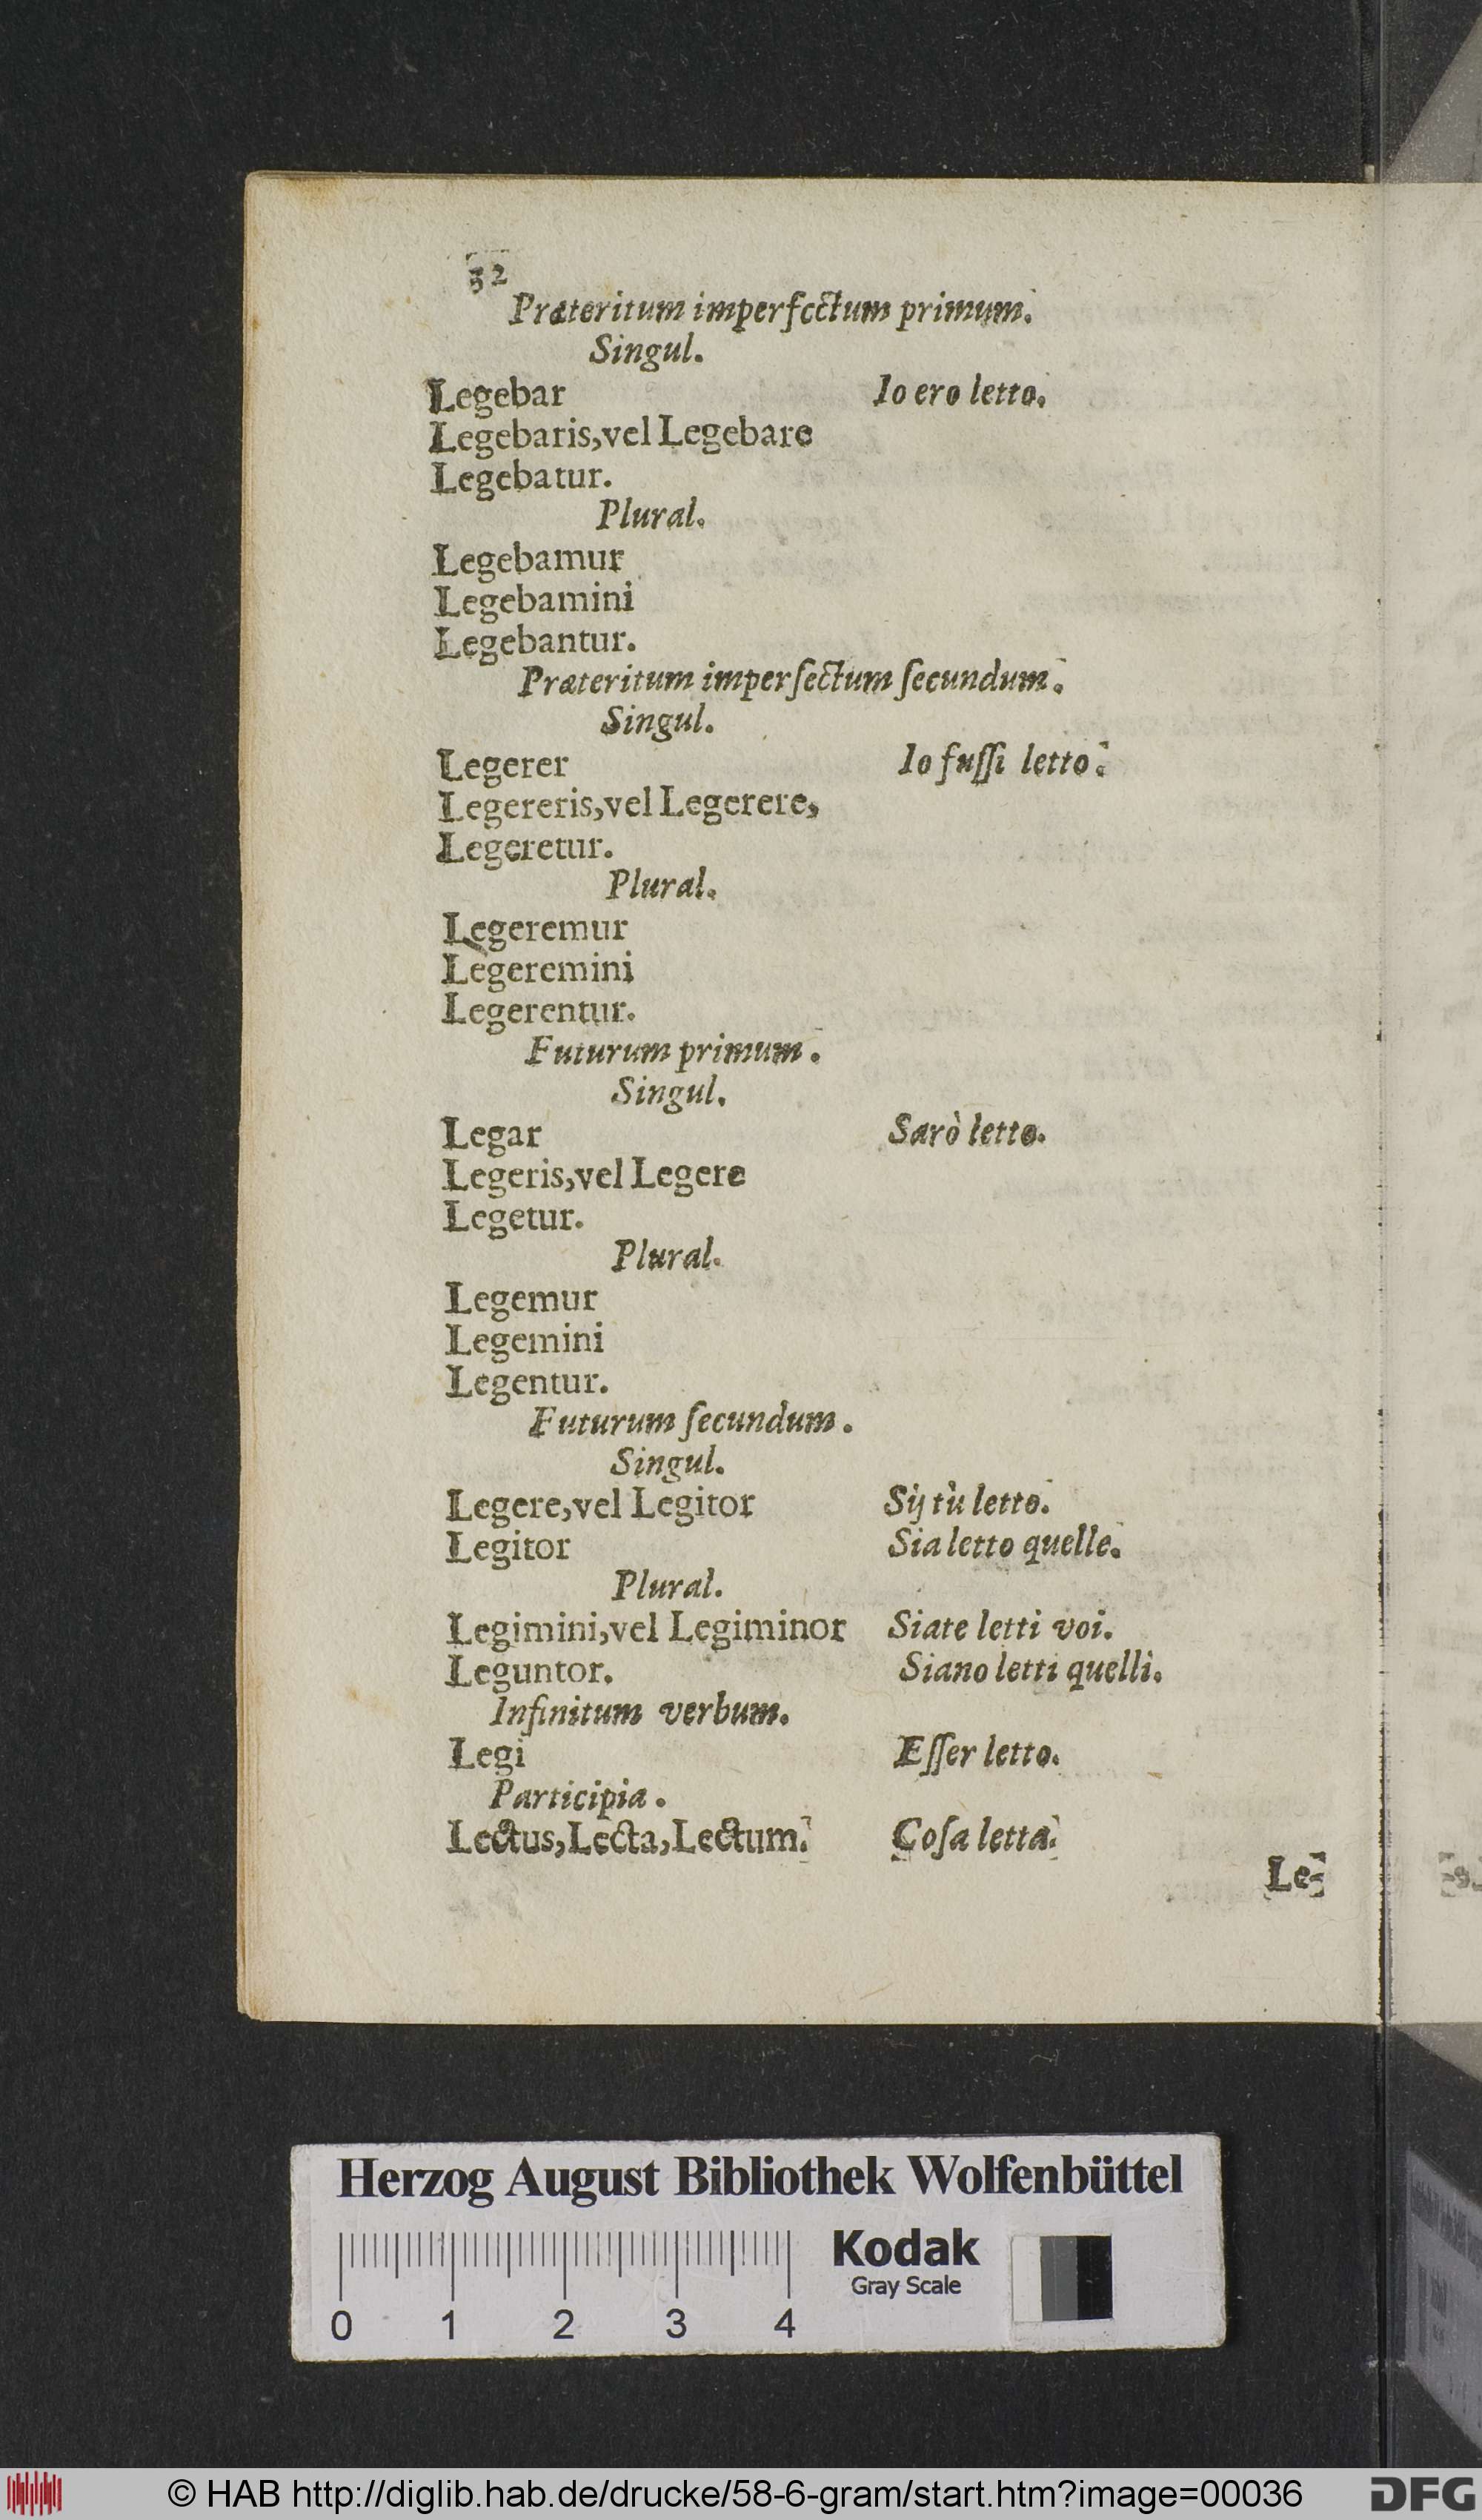 32
Præteritum imperfectum primum.
Singul.
Legebar Io ero letto.
Legebaris,vel Legebare
Legebatur.
Plural.
Legebamur
Legebamini
Legebantur.
Præteritum imperſectum ſecundum.
Singul.
Legerer Io fuſſi letto.
Legereris,vel Legerere,
Legeretur.
Plural.
Legeremur
Legeremini
Legerentur.
Futurum primum.
Singul.
Legar Sarò letto.
Legeris,vel Legere
Legetur.
Plural.
Legemur
Legemini
Legentur.
Futurum ſecundum.
Singul.
Legere,vel Legitor Sij tù letto.
Legitor Sia letto quelle.
Plural.
Legimini,vel Legiminor Siate letti voi.
Leguntor. Siano letti quelli.
Infinitum verbum.
Legi Eſſer letto.
Participia.
Lectus,Lecta,Lectum. Coſa letta.
Le-
Herzog August Bibliothek Wolfenbüttel
Kodak
Gray Scale
0 1 2 3 4
© HAB http://diglib.hab.de/drucke/58-6-gram/start.htm?image=00036
DFG